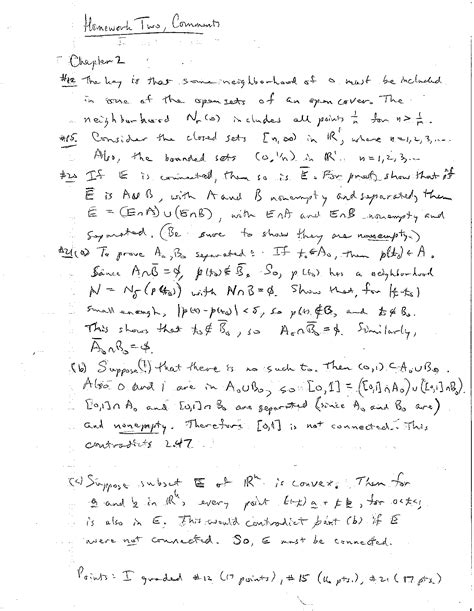 Homework Two, Comments
Chapter 2
#12 The key is that some neighborhood of 0 must be included
in one of the open sets of an open cover. The
neighborhood Nᵣ(0) includes all points 1/n for n > 1/r.
#15. Consider the closed sets [n,∞) in ℝ¹, where n=1,2,3,...
Also, the bounded sets (0,1/n) in ℝ¹ n=1,2,3...
#20 If E is connected, then so is E̅. For proof, show that if
E̅ is A∪B, with A and B nonempty and separated, then
E = (E∩A)∪(E∩B), with E∩A and E∩B nonempty and
separated. (Be sure to show they are nonempty.)
#21(a) To prove A₀, B₀ separated: If t₀∈A₀, then p(t₀)∈A.
Since A∩B̅=∅, p(t₀)∉B̅. So, p(t₀) has a neighborhood
N = N_δ(p(t₀)) with N∩B=∅. Show that, for |t-t₀|
small enough, |p(t)-p(t₀)|<δ, so p(t)∉B, and t∉B₀.
This shows that t₀∉B̅₀, so A₀∩B̅₀=∅. Similarly,
A̅₀∩B₀=∅.
(b) Suppose(!) that there is no such t₀. Then (0,1)⊂A₀∪B₀.
Also 0 and 1 are in A₀∪B₀, so [0,1]=([0,1]∩A₀)∪([0,1]∩B₀).
[0,1]∩A₀ and [0,1]∩B₀ are separated (since A₀ and B₀ are)
and nonempty. Therefore [0,1] is not connected. This
contradicts 2.47.
(c) Suppose subset E of ℝᵏ is convex. Then for
a and b in ℝᵏ, every point (1-t)a + tb, for 0<t<1
is also in E. This would contradict part (b) if E
were not connected. So, E must be connected.
Points: I graded #12 (17 points), #15 (16 pts.), #21 (17 pts)